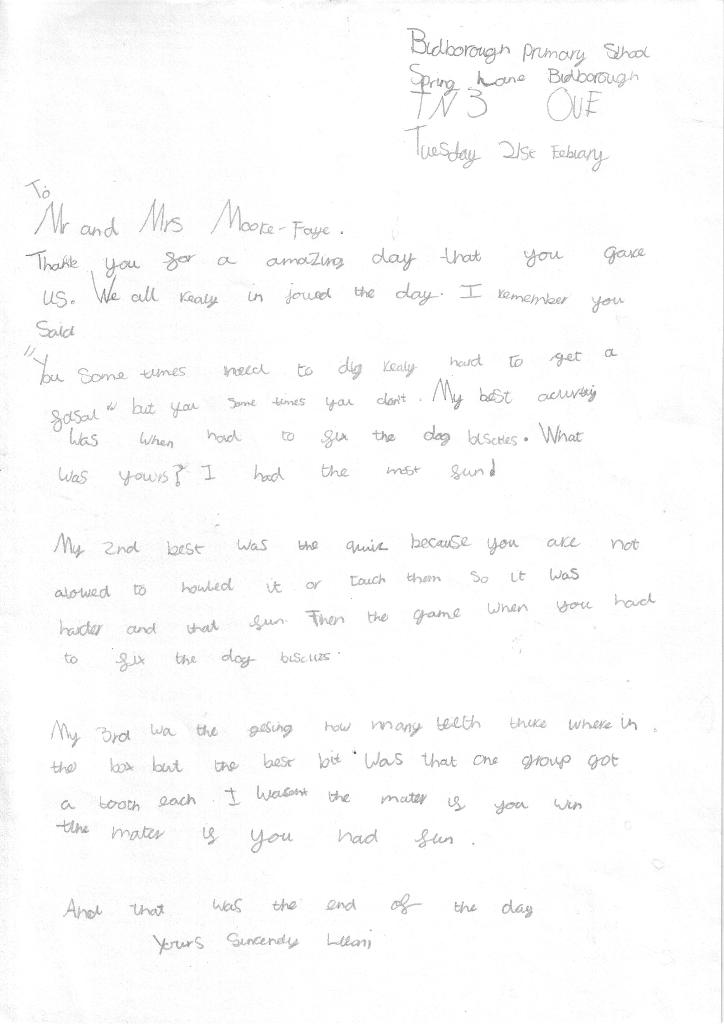 Bidborough Primary School
Spring Lane Bidborough
TN3 OUE
Tuesday 21st Febuary
To
Mr and Mrs Moore-Faye.
Thank you for a amazing day that you gave
us. We all realy in joued the day. I remember you
Said
"You Some times need to dig realy hard to get a
fosal" but you some times you don't. My best activity
was when had to fix the dog biscties. What
was yours? I had the most fun!
My 2nd best was the quiz because you are not
alowed to houled it or touch them so it was
harder and that fun. Then the game when you had
to fix the dog biscties.
My 3rd wa the gesing how many teeth there where in
the box but the best bit was that one group got
a tooth each. I wasent the mater if you win
the mater if you had fun.
And that was the end of the day
Yours Sincerely